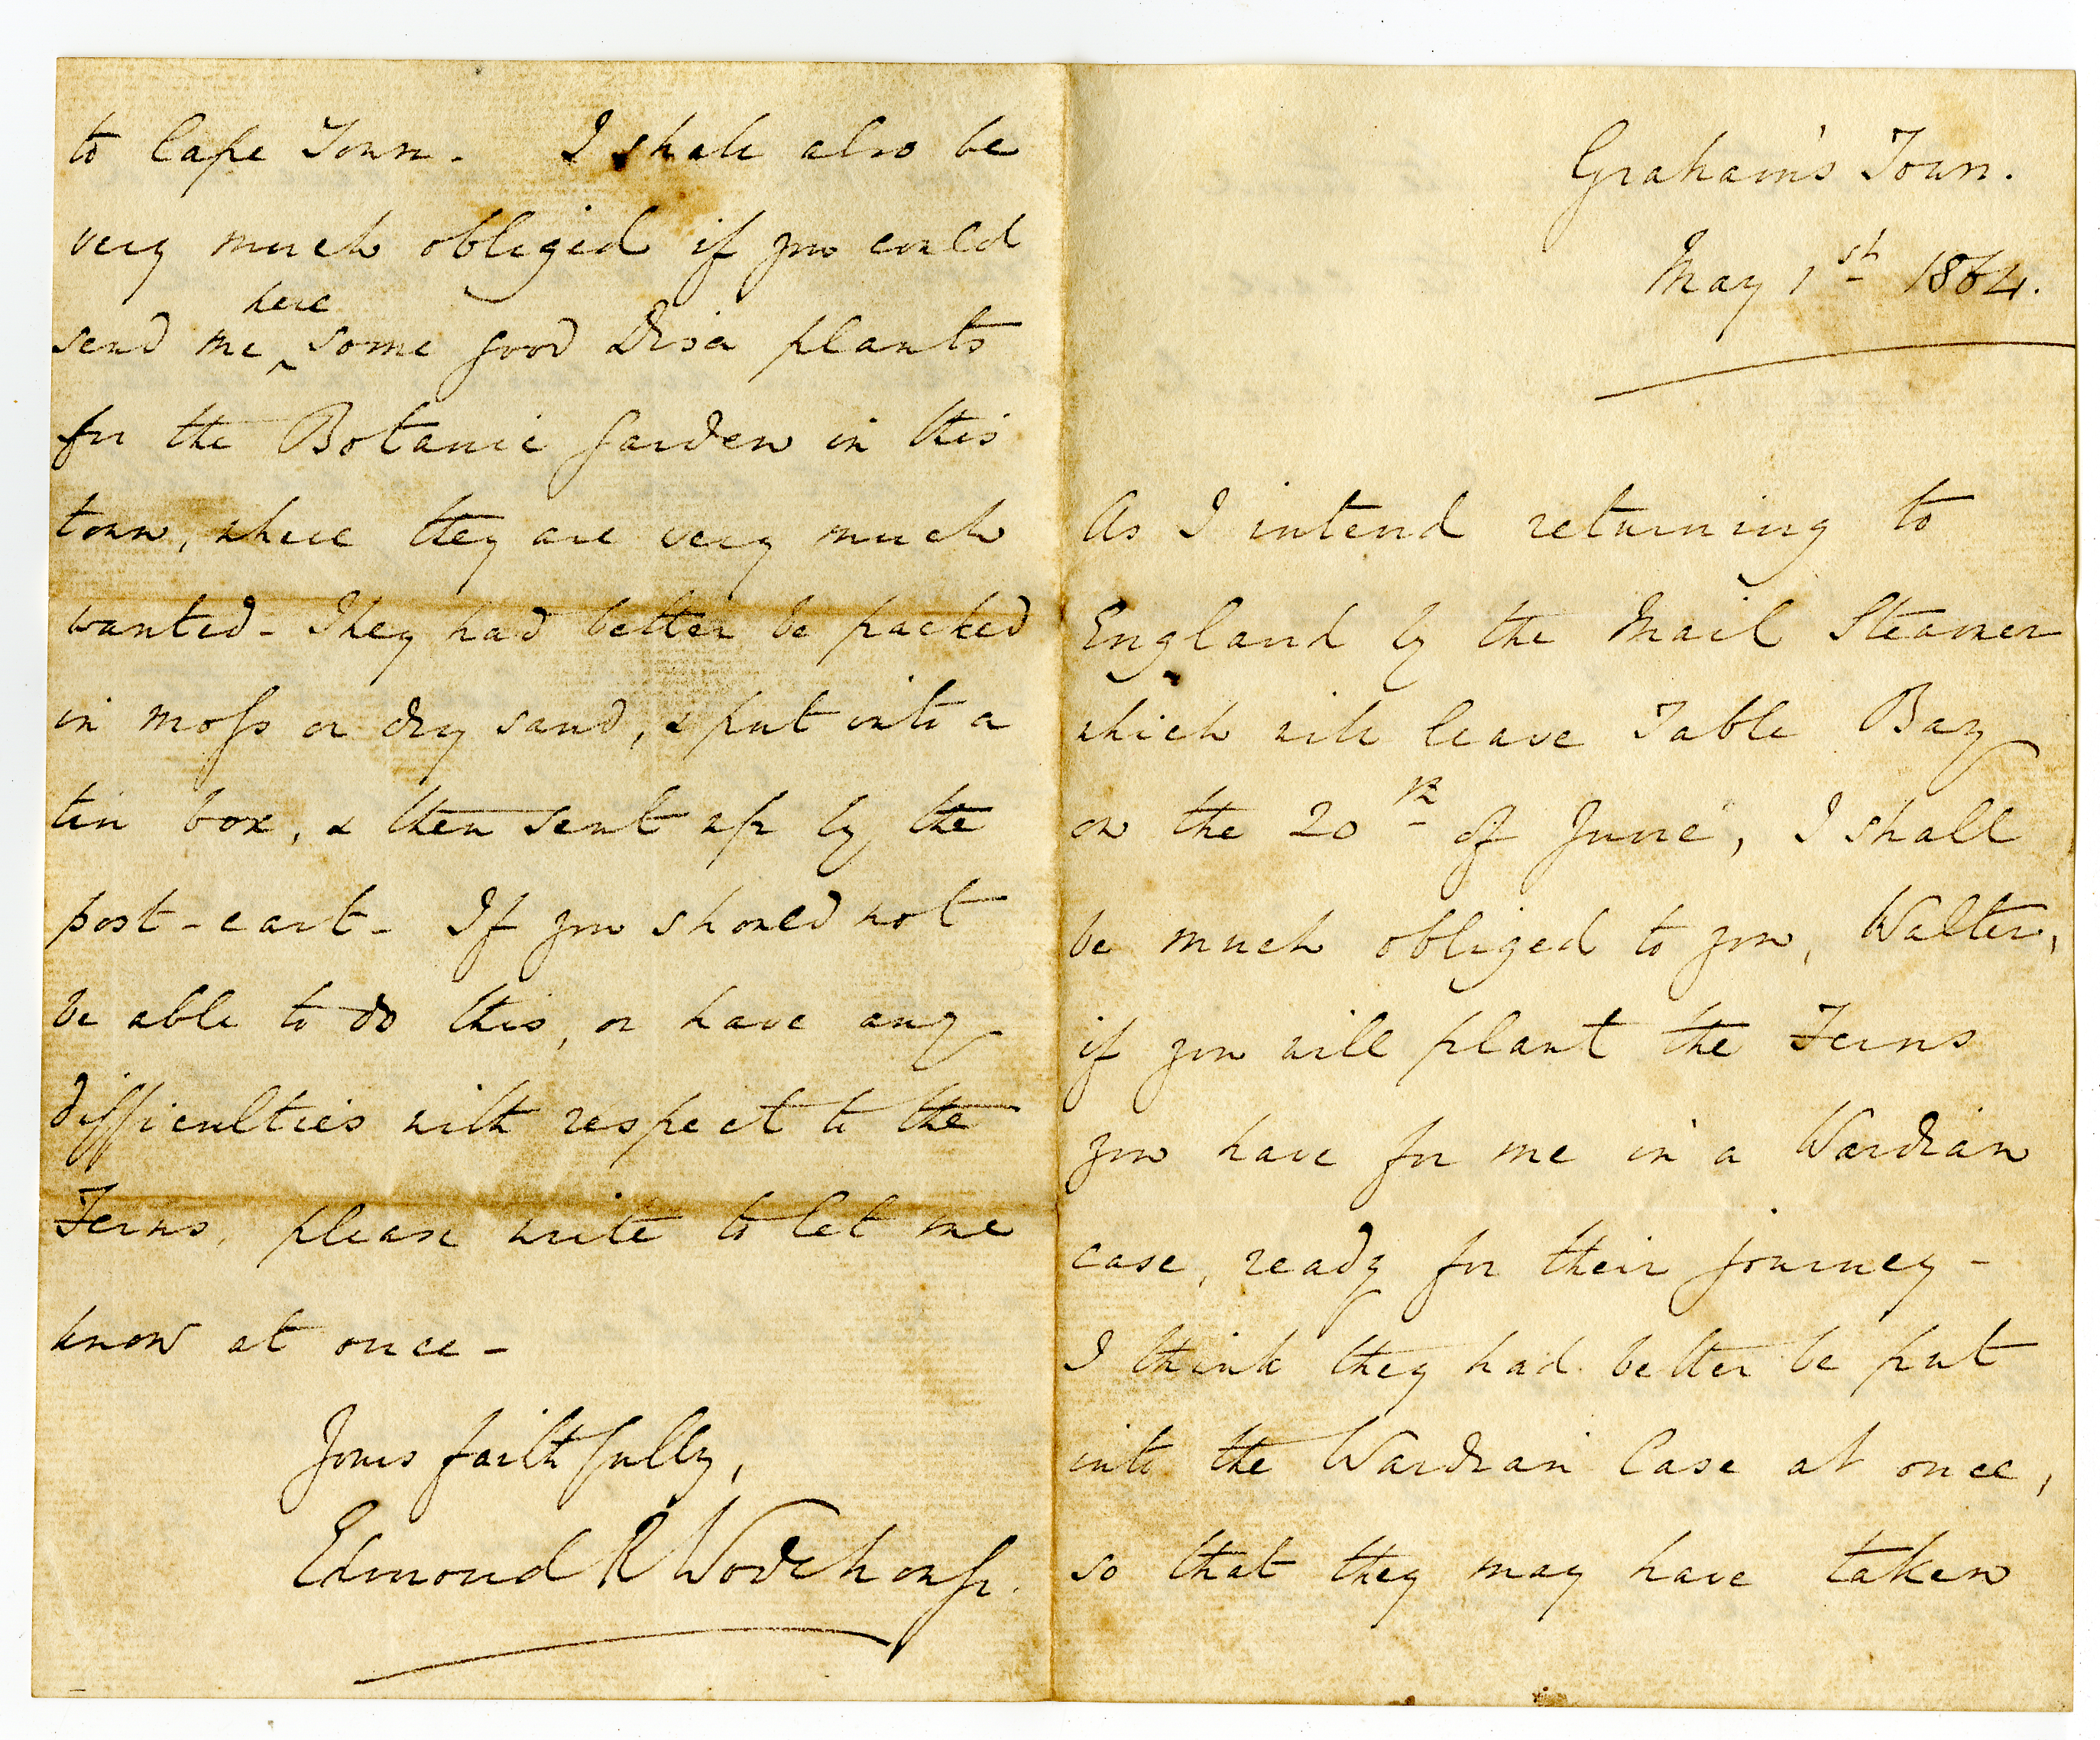 Graham's Town.
May 1st 1864.
As I intend returning to
England by the Mail Steamer
which will leave Table Bay
on the 20th of June, I shall
be much obliged to you, Walter,
if you will plant the Ferns
you have for me in a Wardian
case, ready for their journey -
I think they had better be put
into the Wardian Case at once,
so that they may have taken
to Cape Town - I shall also be
very much obliged if you could
here
send me ^ some good Disa plants
for the Botanic Garden in this
town, where they are very much
wanted - They had better be packed
in moss or dry sand, & put into a
tin box, & then sent up by the
post-cart - If you should not
be able to do this, or have any
difficulties with respect to the
Ferns, please write to let me
know at once -
Yours faithfully,
Edmond R Wodehouse.